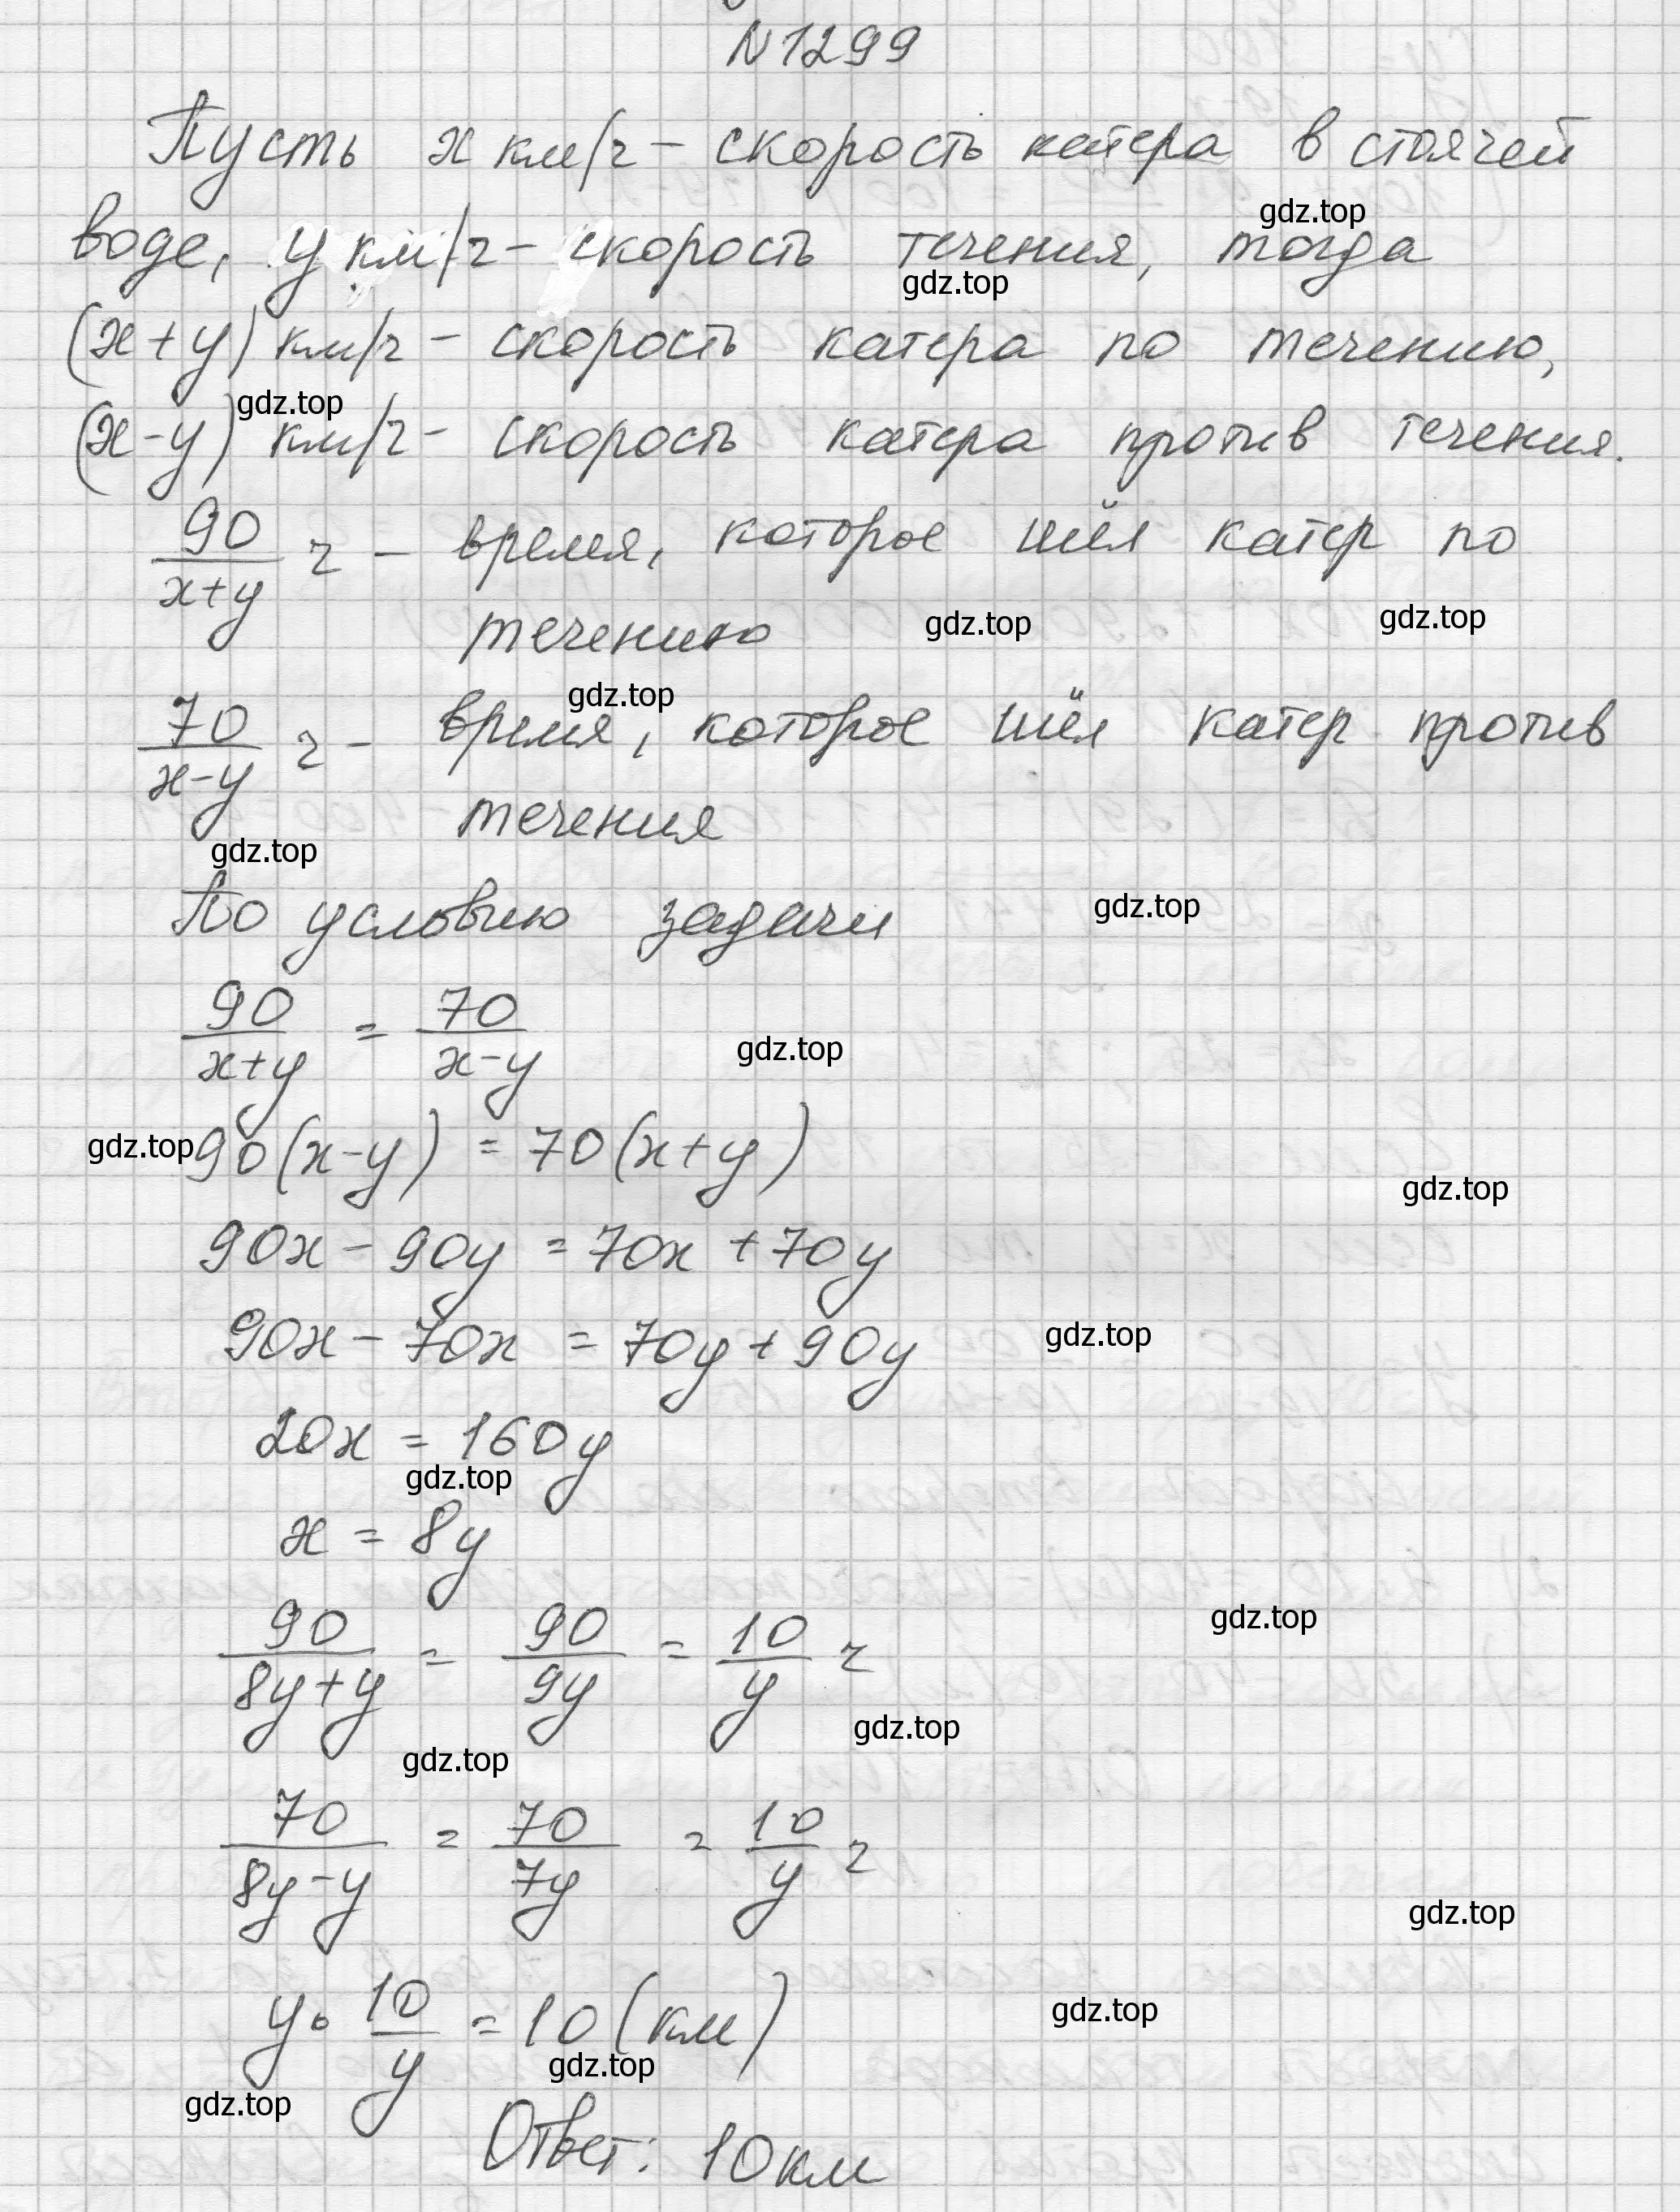 N 1299
Пусть x км/ч – скорость катера в стоячей
gdz.top
воде, y км/ч – скорость течения, тогда
gdz.top
(x+y) км/ч – скорость катера по течению,
gdz.top
(x-y) км/ч – скорость катера против течения.
90/(x+y) ч – время, которое шёл катер по
течению
gdz.top gdz.top
gdz.top
70/(x-y) ч – время, которое шёл катер против
течения
gdz.top
По условию задачи
gdz.top
90/(x+y) = 70/(x-y)
gdz.top
gdz.top 90(x-y) = 70(x+y)
gdz.top
90x - 90y = 70x + 70y
90x - 70x = 70y + 90y
gdz.top
20x = 160y
gdz.top
x = 8y
90/(8y+y) = 90/9y = 10/y ч
gdz.top
gdz.top
gdz.top
70/(8y-y) = 70/7y = 10/y ч
gdz.top
y · 10/y = 10 (км)
gdz.top
gdz.top
gdz.top
Ответ: 10 км